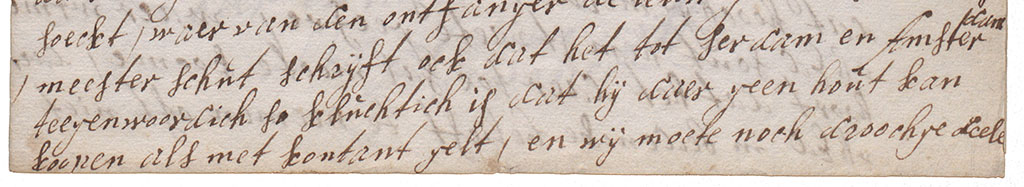 soeckt, waer van den ontfanger
meester schut schrijft ock dat het tot serdam en Amsterdam
teegenwoordich so kluchtich is dat hij daer geen hout kan
koopen als met kontant gelt, en wij moete noch droochge deele